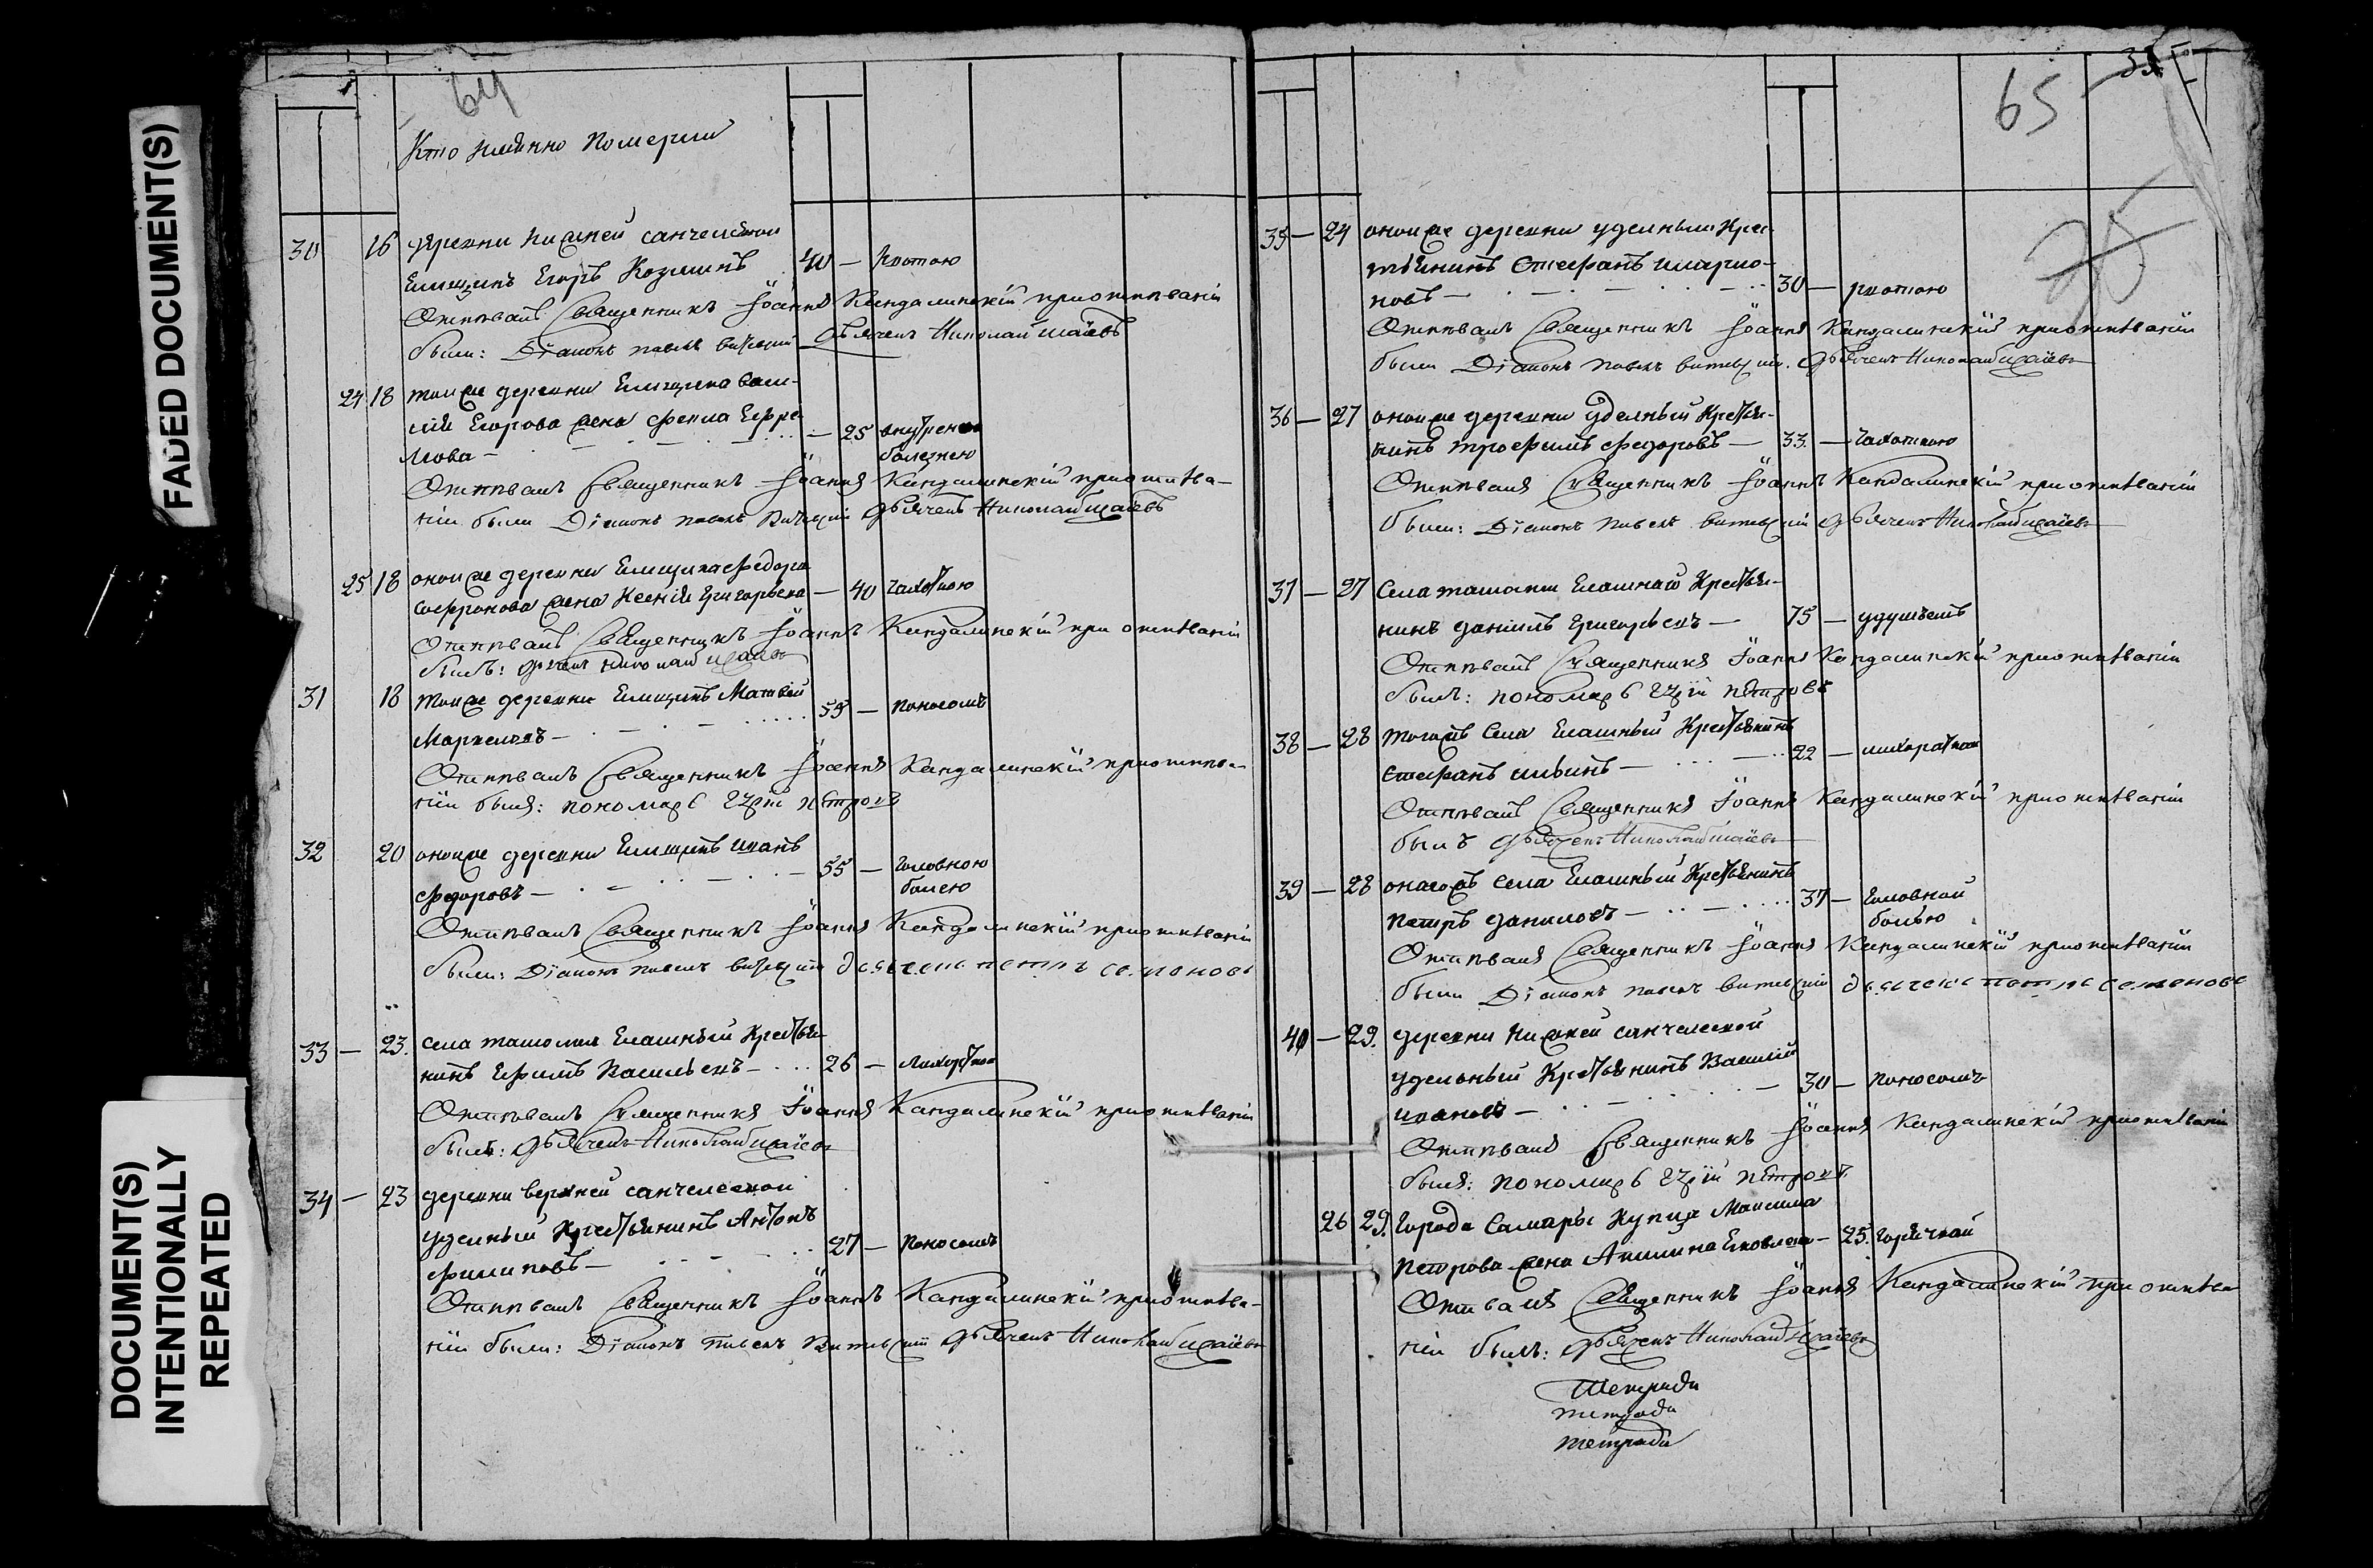 FADED DOCUMENT(S)
DOCUMENT(S)
INTENTIONALLY
REPEATED
64
Кто имянно Померли
30 16 деревни Нижней санчелеевой
Емщикъ Егоръ Козминъ 40 — Рвотою
Отпѣвалъ Священникъ Іоаннъ Кандалинскій приотпѣваніи
были: Діаконъ павелъ витевскій Дьячекъ Николай исаіевъ
24 18 тоиже деревни Емщика Васи-
лія Егорова жена Фекла Ефре-
мова — 25 внутренею
болезнею
Отпѣвалъ Священникъ Іоаннъ Кандалинскій приотпѣва-
ніи были Діаконъ павелъ Витевскій Дьячекъ Николай исаіевъ
25 18 оноиже деревни Емщика Федора
Софронова жена Ксенія Григорьева — 40 чахоткою
Отпѣвалъ Священникъ Іоаннъ Кандалинскій при отпѣваніи
былъ: Дьячекъ Николай исаіевъ
31 18 Тоиже деревни Емщикъ Матвѣй
Маркеловъ — 55 — поносомъ
Отпѣвалъ Священникъ Іоаннъ Кандалинскій приотпѣва-
ніи былъ: пономарь петровъ
32 20 оноиже деревни Емщикъ иванъ
Федоровъ — 55 — головною
болею
Отпѣвалъ Священникъ Іоаннъ Кандалинскій приотпѣваніи
были: Діаконъ павелъ витевскій дьячекъ петръ семионовъ
33 — 23. села ташолки Елашный Крестья-
нинъ Ефимъ Васильевъ — 26 — Лихораткою
Отпѣвалъ Священникъ Іоаннъ Кандалинскій приотпѣваніи
былъ: Дьячекъ Николай исаіевъ
34 — 23 деревни верхней санчелеевой
уделный Крестьянинъ Антонъ
Филиповъ — 27 — Поносомъ
Отпѣвалъ Священникъ Іоаннъ Кандалинскій приотпѣва-
ніи были: Діаконъ павелъ Витевскій Дьячекъ Николай исаіевъ
65
35 — 24 оноиже деревни уделный Крес-
тьянинъ Стефанъ иларио-
новъ — 30 — рвотою
Отпѣвалъ Священникъ Іоаннъ Кандалинскій приотпѣваніи
были Діаконъ павелъ витевскій. Дьячекъ Николай исаіевъ
36 — 27 оноиже деревни уделный Крестья-
нинъ трофимъ Федоровъ — 33. — чахоткою
Отпѣвалъ Священникъ Іоаннъ Кандалинскій приотпѣваніи
были: Діаконъ павелъ витевскій Дьячекъ Николай исаіевъ
37 — 27 Села ташолки Елашнаго Крестья-
нинъ даніилъ Григорьевъ — 75 — удушьемъ
Отпѣвалъ Священникъ Іоаннъ Кандалинскій приотпѣваніи
былъ: пономарь петровъ
38 — 28 тогожъ Села Елашный Крестьянинъ
Стефанъ ильинъ — 22 — лихораткою
Отпѣвалъ Священникъ Іоаннъ Кандалинскій приотпѣваніи
былъ Дьячекъ Николай исаіевъ
39 — 28 онагожъ Села Елашный Крестьянинъ
Петръ даниловъ — 37 — Головной
болью
Отпѣвалъ Священникъ Іоаннъ Кандалинскій приотпѣваніи
были Діаконъ павелъ витевскій дьячекъ петръ семеновъ
40 — 29. деревни Нижней санчелеевой
удельный Крестьянинъ Василій
ивановъ — 30 — поносомъ
Отпѣвалъ Священникъ Іоаннъ Кандалинскій приотпѣваніи
былъ: пономарь петровъ
26 29. Города Самары Купца Максима
Петрова жена Акилина Яковлева — 25. горячкой
Отпѣвалъ Священникъ Іоаннъ Кандалинскій при отпѣва
ніи былъ: Дьячекъ Николай исаіевъ
тетради
тетради
тетради